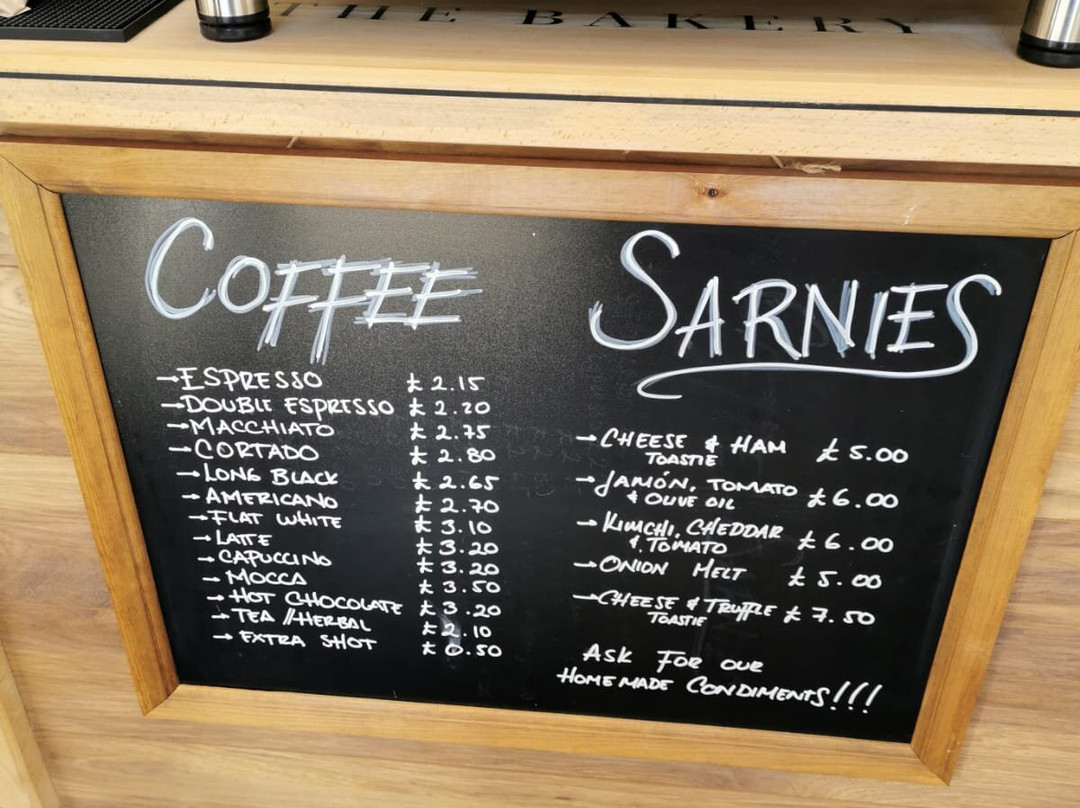 THE BAKERY
COFFEE
→ESPRESSO £2.15
→DOUBLE ESPRESSO £2.20
→MACCHIATO £2.75
→CORTADO £2.80
→LONG BLACK £2.65
→AMERICANO £2.70
→FLAT WHITE £3.10
→LATTE £3.20
→CAPUCCINO £3.20
→MOCCA £3.50
→HOT CHOCOLATE £3.20
→TEA //HERBAL £2.10
→EXTRA SHOT £0.50
SARNIES
→CHEESE & HAM £5.00
TOASTIE
→JAMÓN, TOMATO £6.00
& OLIVE OIL
→KIMCHI, CHEDDAR £6.00
& TOMATO
→ONION MELT £5.00
→CHEESE & TRUFFLE £7.50
TOASTIE
ASK FOR OUR
HOMEMADE CONDIMENTS!!!